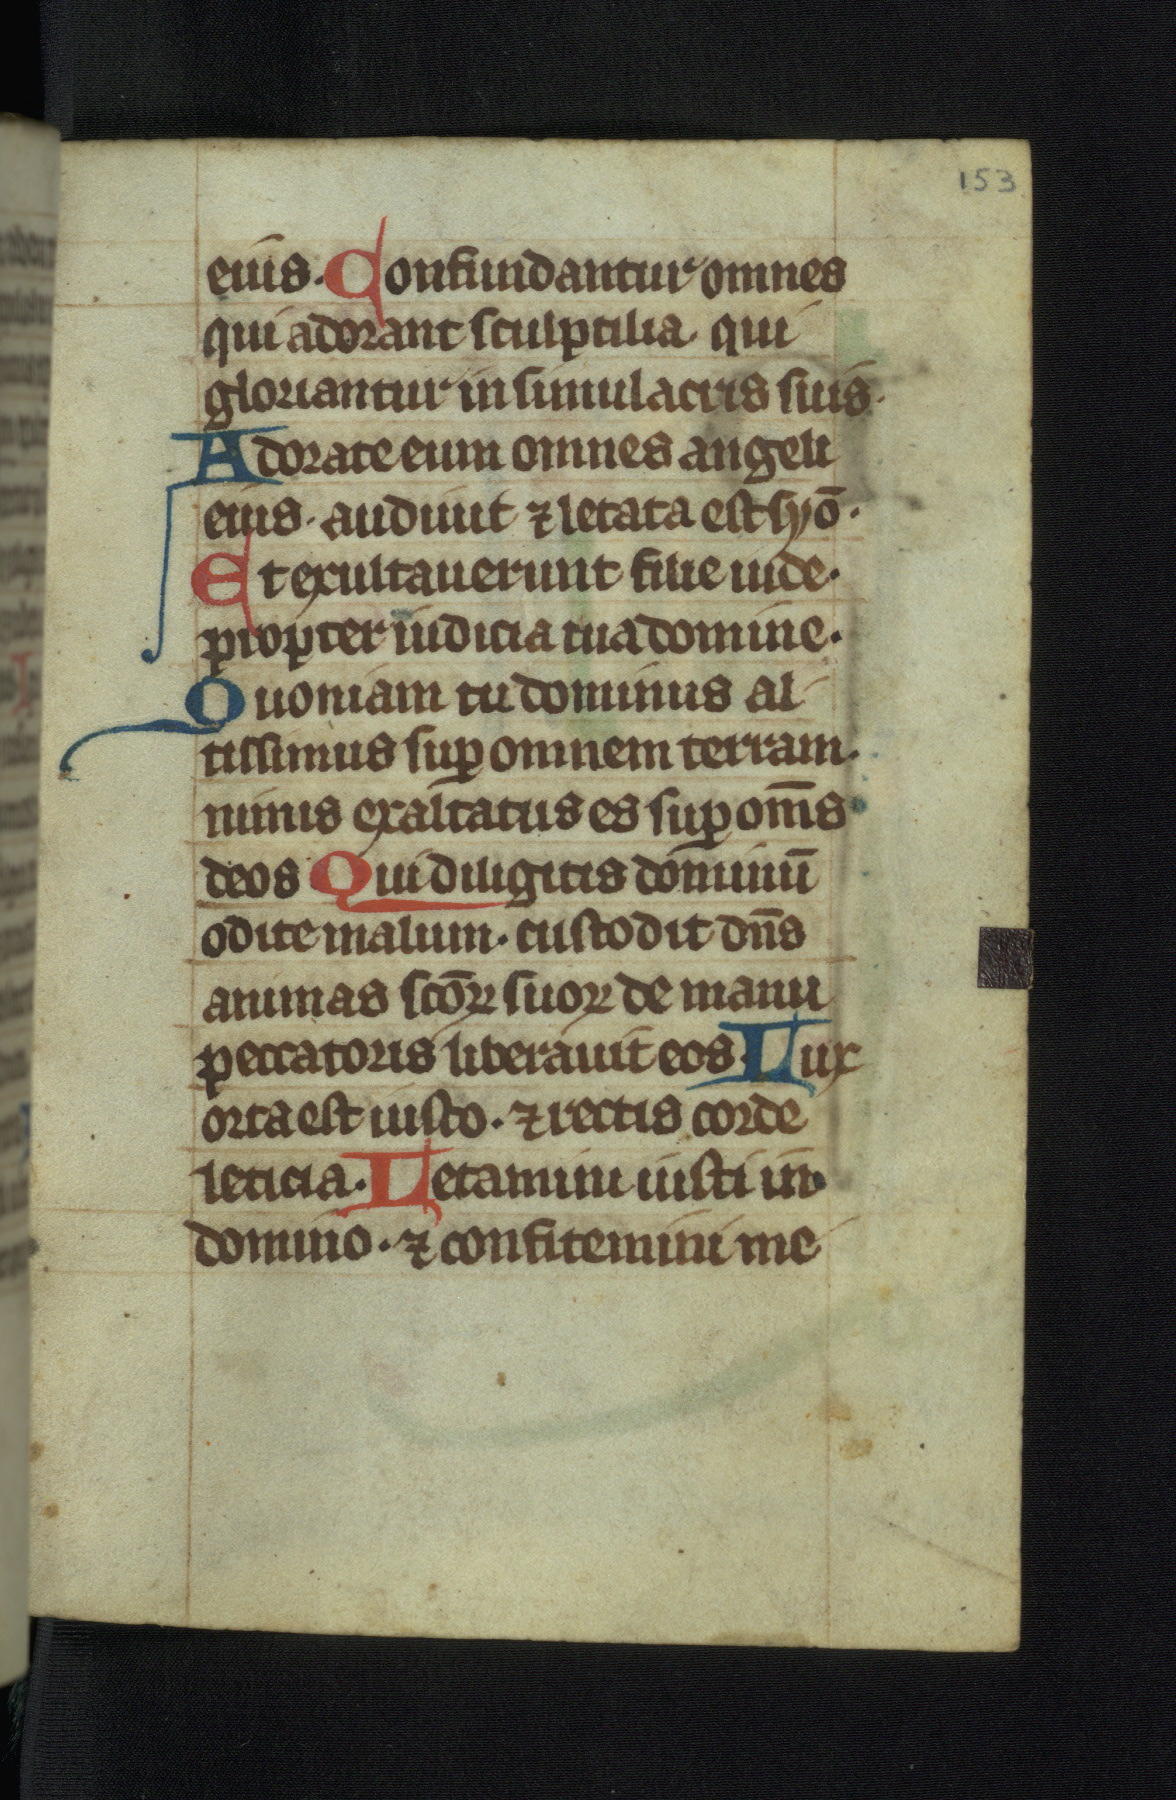 153
eius. Confundantur omnes
qui adorant sculptilia. qui
gloriantur in simulacris suis.
Adorate eum omnes angeli
eius. audiuit ⁊ letata est syō.
Et exultauerunt filie iude.
propter iudicia tua domine.
Quoniam tu dominus al
tissimus suꝑ omnem terram.
nimis exaltatus es suꝑ om̅s
deos Qui diligitis dominū
odite malum. custodit dn̅s
animas sco̅ꝝ suoꝝ de manu
peccatoris liberauit eos. Lux
orta est iusto. ⁊ rectis corde
leticia. Letamini iusti in
domino. ⁊ confitemini me